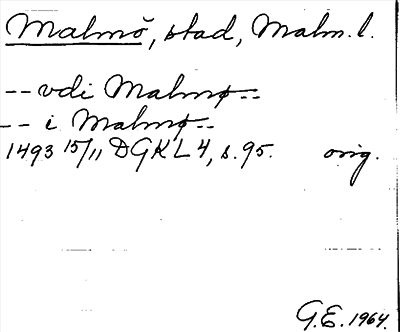 Malmö, stad, Malm. l.
-- vdi Malmø --
-- i Malmø --
1493 15/11 DGKL 4, s. 95. orig.
G.E. 1964.